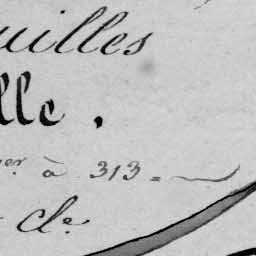 uilles
lle.
er à 313 =
cle